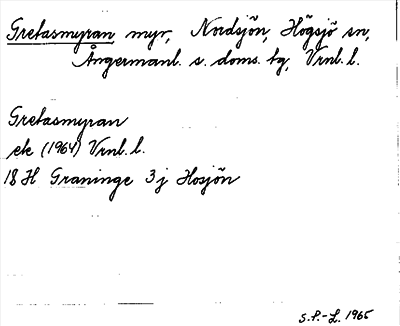 Gretasmyran, myr, Nordsjön, Högsjö sn,
Ångermanl. s. doms. tg, Vrnl. l.
Gretasmyran
ek (1964) Vrnl. l.
18 H Graninge 3 j Hosjön
S.P.-L. 1965